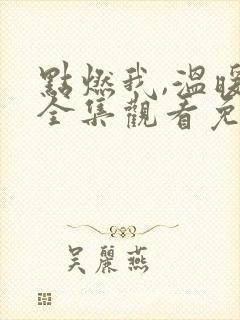 點燃我,溫暖
全集觀看免
吳麗燕